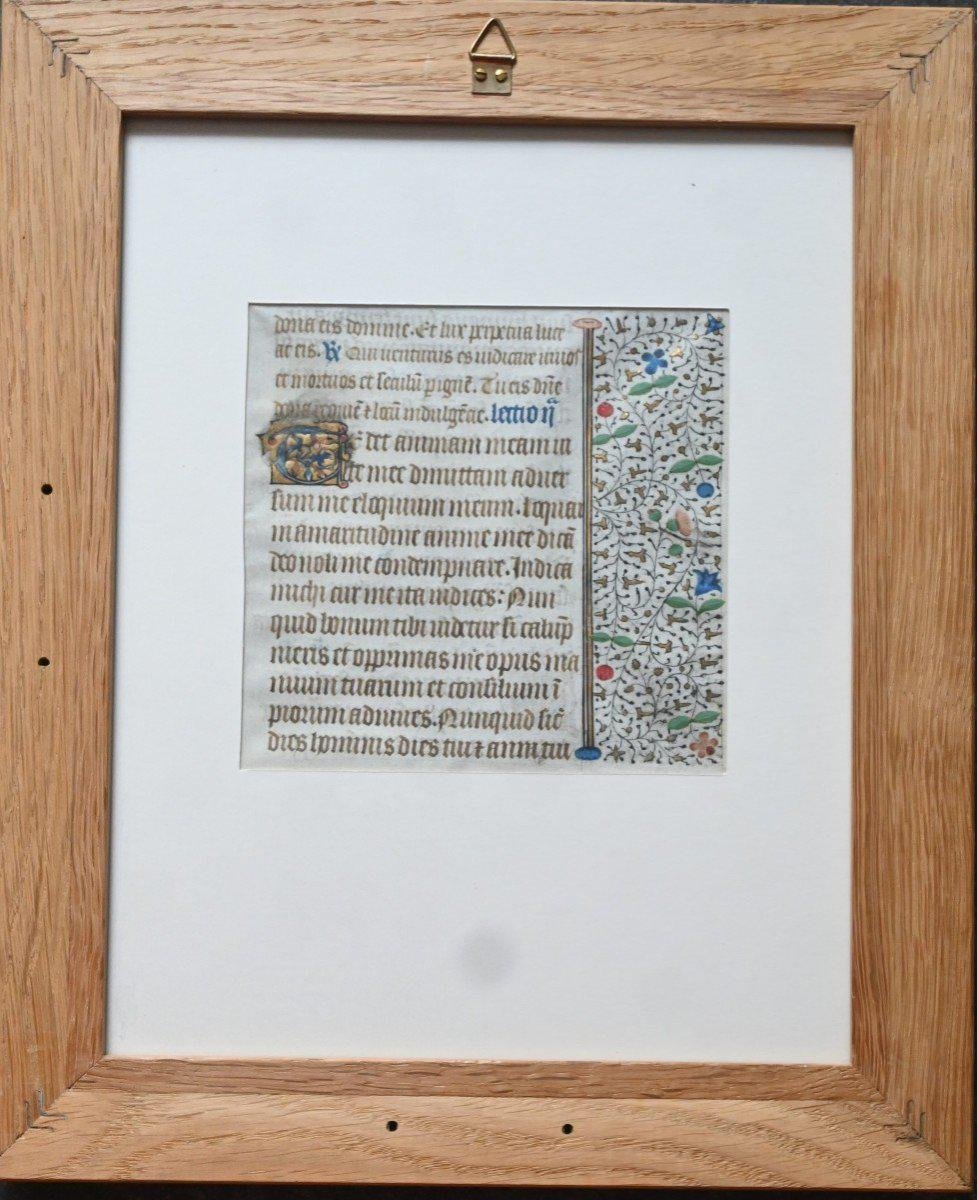 dona eis domine. Et lux perpetua luce
at eis. V Qui uenturus es iudicare uiuos
et mortuos et seculū p ignē. Tu eis dn̄e
dona requiē ⁊ locū indulgēcie. lectio ij
Tedet animam meam ui
te mee dimittam aduer
sum me eloquium meum. loquar
in amaritudine anime mee dicā
deo noli me condempnare. Indica
michi cur me ita iudices: Nun
quid bonum tibi uidetur si calūp
nieris et opprimas me opus ma
nuum tuarum et consilium ī
piorum adiuues. Nunquid sic̄
dies hominis dies tui ⁊ anni tui